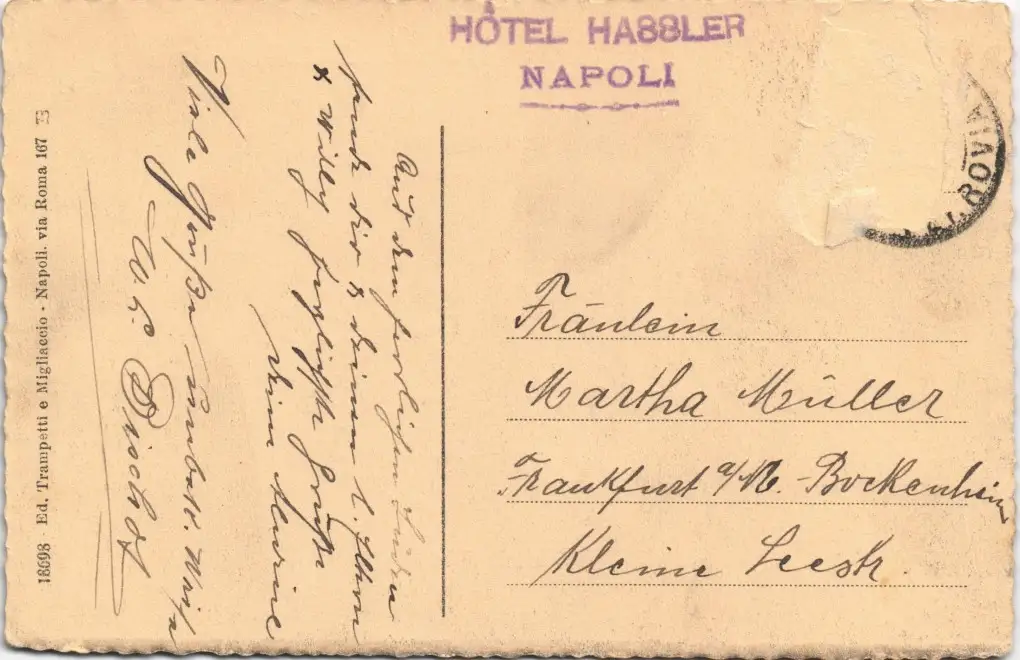 HÔTEL HASSLER
NAPOLI
ROVIA
18698 - Ed. Trampetti e Migliaccio - Napoli. via Roma 167
Aus dem herrlichen Süden
sende dir & deinen l. Eltern
& Willy herzlichste Grüße
dein
Viele Grüße
W. Bischof
Fräulein
Martha Müller
Frankfurt a/M. - Bockenheim
Kleine Seestr.